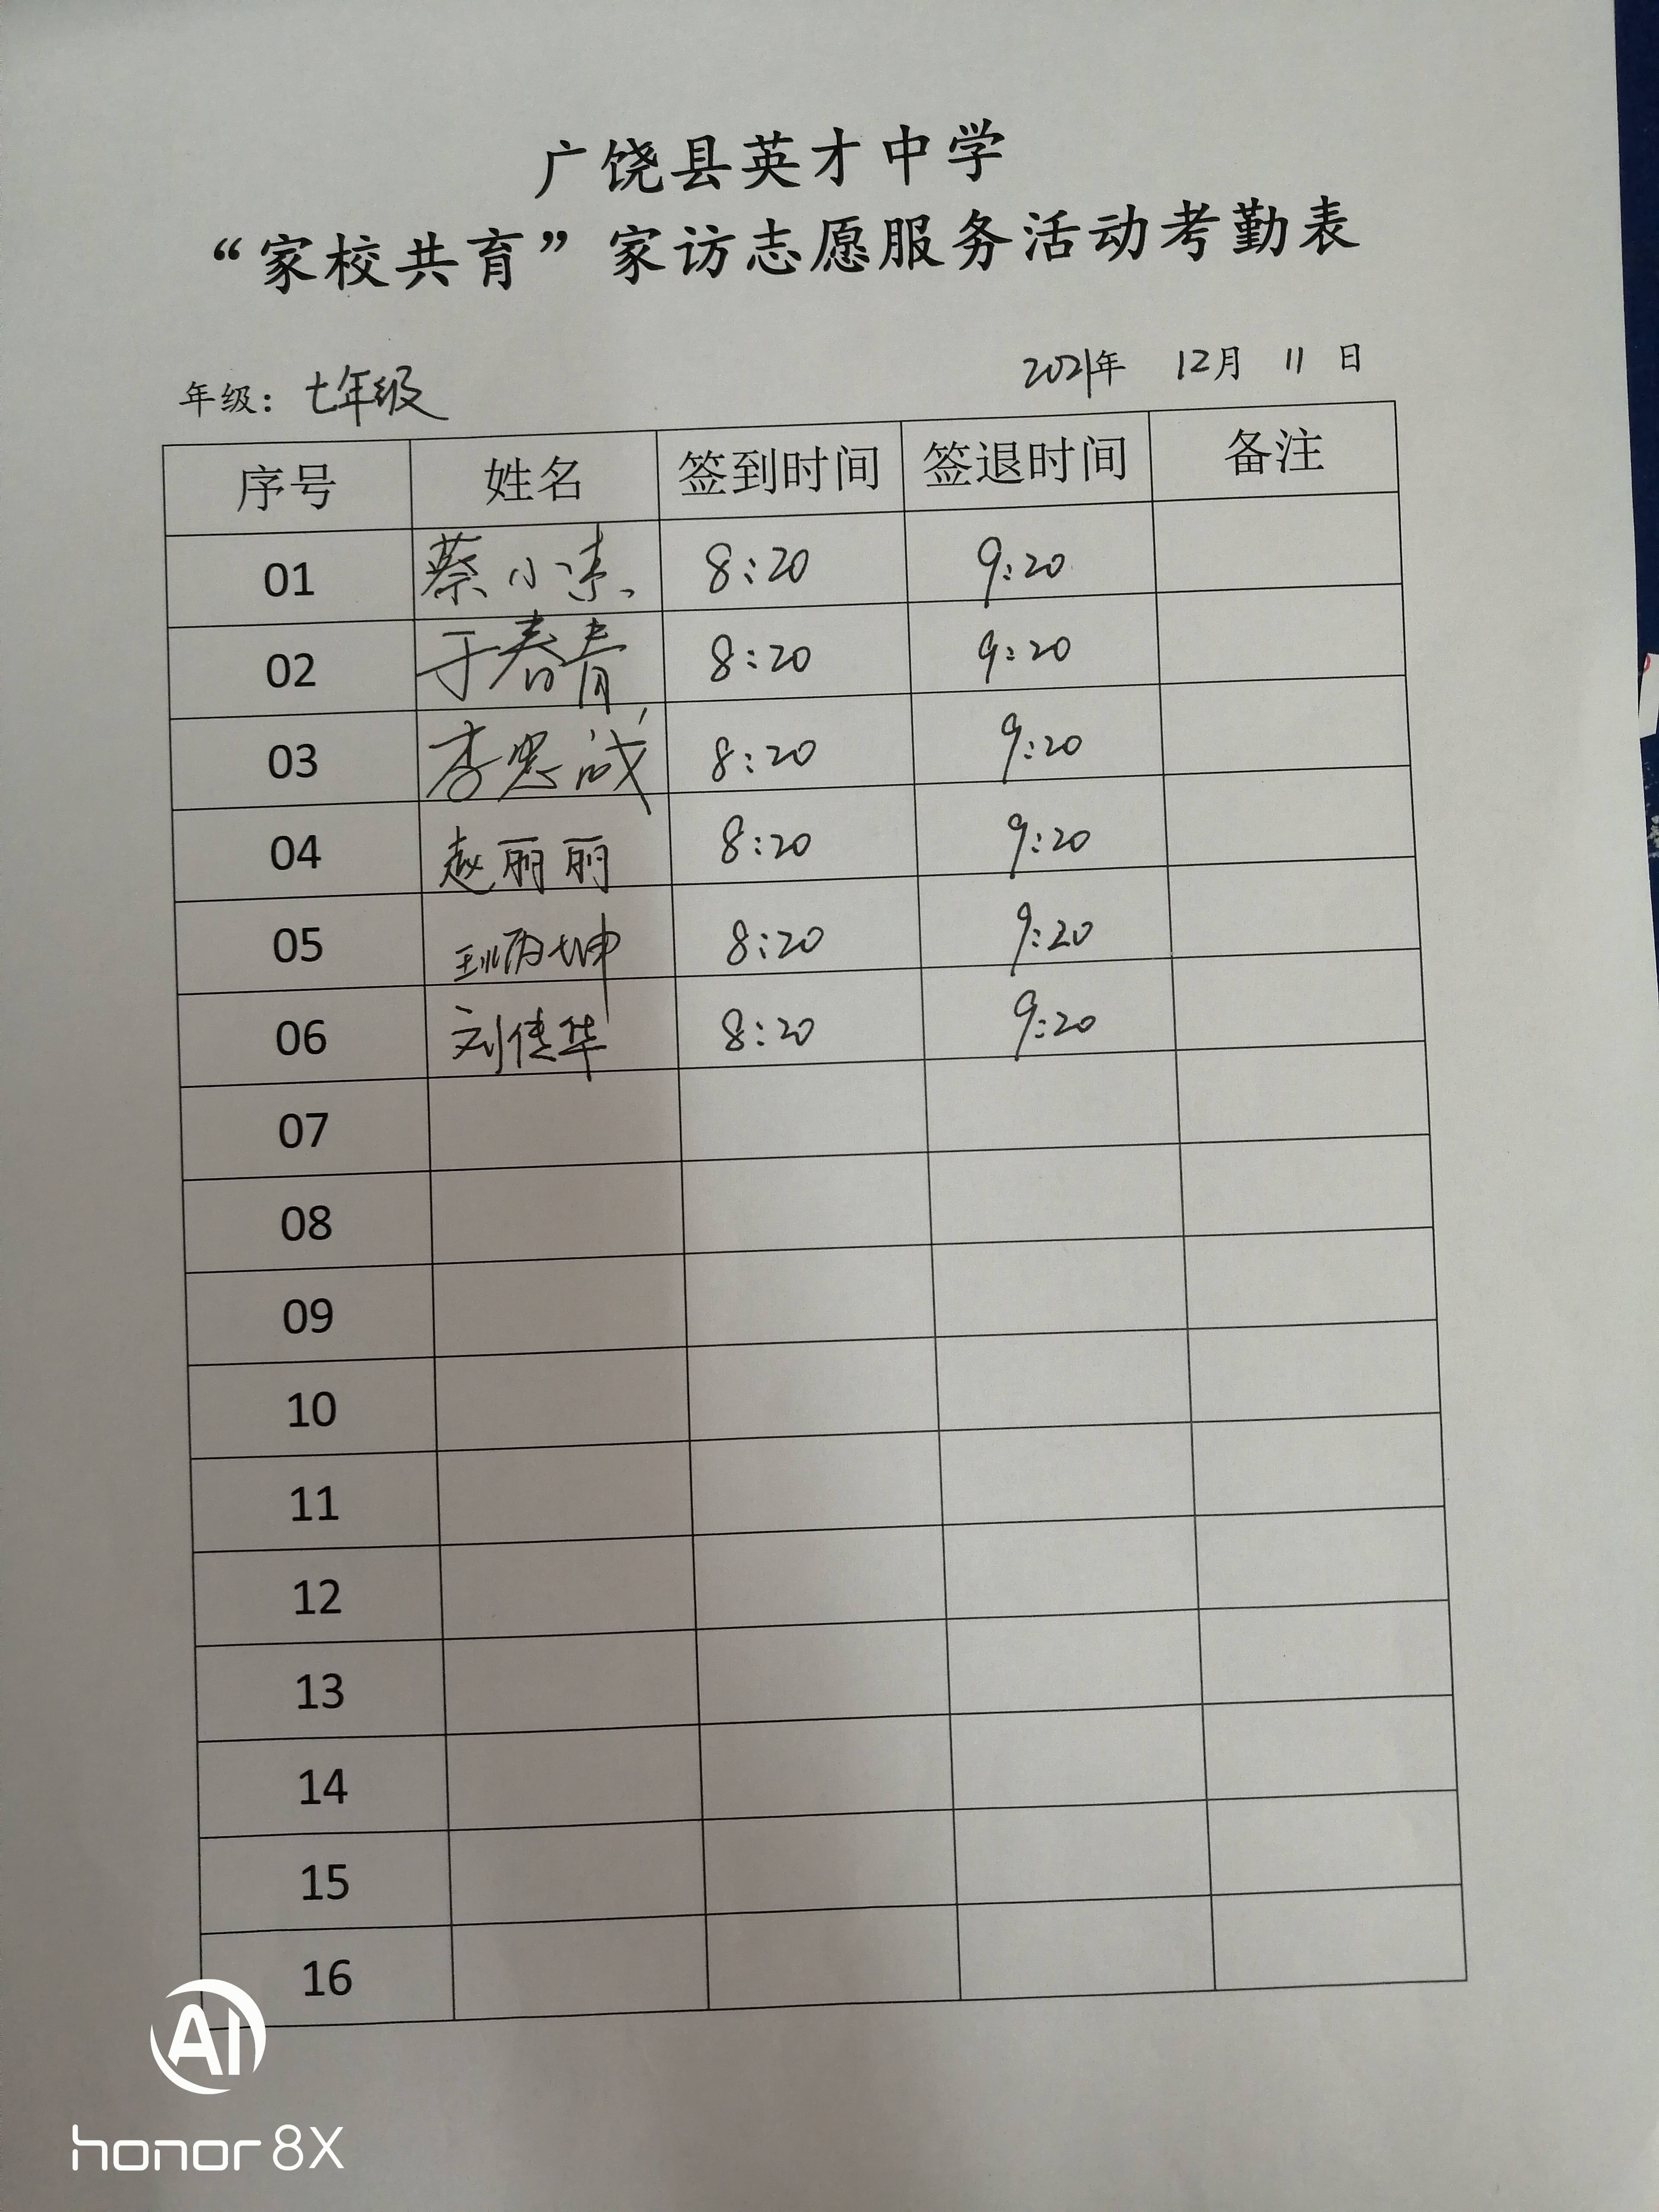 广饶县英才中学
“家校共育”家访志愿服务活动考勤表
年级：七年级 2021年 12月 11日
序号 姓名 签到时间 签退时间 备注
01 蔡小 8:20 9:20
02 于春青 8:20 9:20
03 李忠诚 8:20 9:20
04 赵丽丽 8:20 9:20
05 8:20 9:20
06 刘佳华 8:20 9:20
07
08
09
10
11
12
13
14
15
16
AI
honor 8X